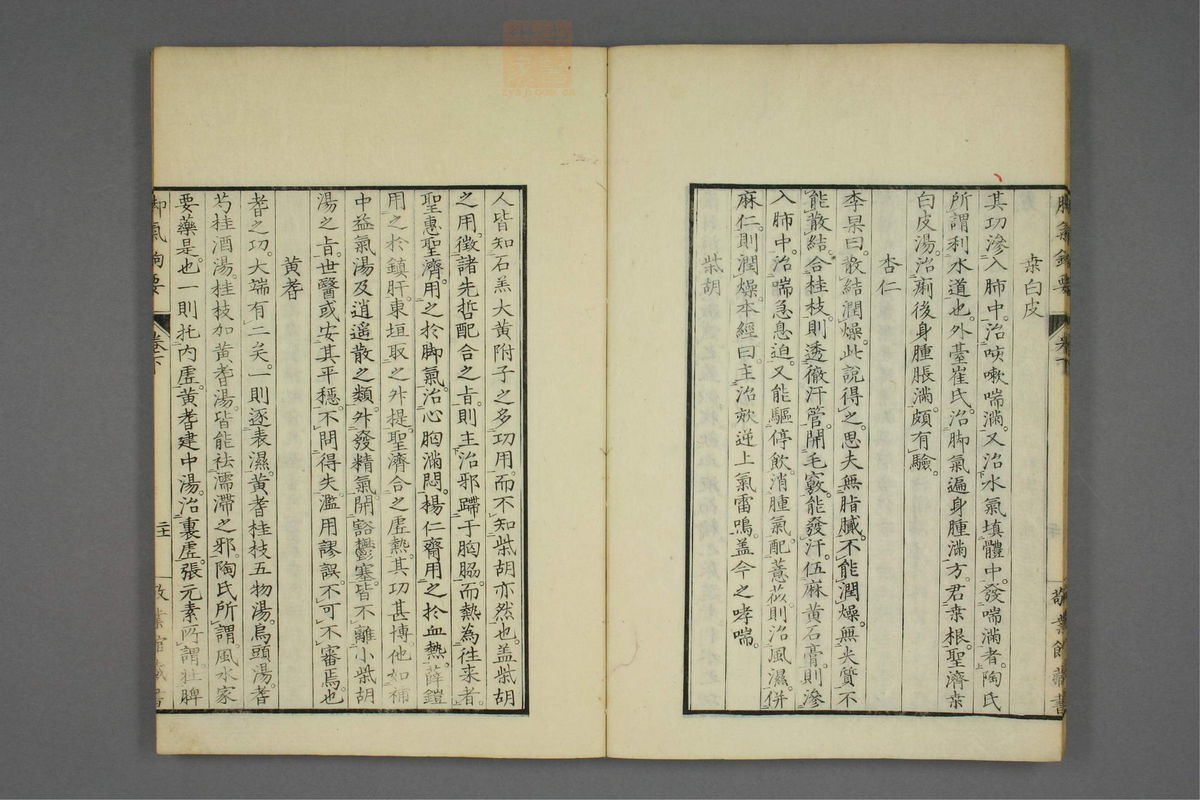 桒白皮
其功滲入肺中。治咳嗽喘滿。又治水氣填體中。發喘滿者。陶氏
所謂利水道也。外臺崔氏。治脚氣遍身腫滿方。君桒根。聖濟桒
白皮湯。治痢後身腫脹滿。頗有驗。
杏仁
李杲曰。散結潤燥。此說得之。思夫無脂膩。不能潤燥。無尖質不
能散結。合桂枝。則透徹汗管。開毛竅。能發汗。伍麻黄石膏。則滲
入肺中。治喘急息迫。又能驅停飲。消腫氣。配薏苡。則治風濕。併
麻仁。則潤燥。本經曰。主治欬逆上氣雷鳴。盖今之哮喘。
柴胡
人皆知石羔大黄附子之多功用。而不知柴胡亦然也。盖柴胡
之用。徵諸先哲配合之旨。則主治邪躋于胸脇。而熱為徃来者。
聖惠聖濟。用之於脚氣。治心胸滿悶。楊仁齋用之於血熱。薛鎧
用之於鎮肝。東垣取之升提。聖濟合之虛熱。其功甚博。他如補
中益氣湯及逍遥散之類。升發精氣。開豁鬱塞。皆不離小柴胡
湯之旨。世醫或安其平穩。不問得失。濫用謬誤。不可不審焉也
黄耆
耆之功。大端有二矣。一則逐表濕。黄耆桂枝五物湯。烏頭湯。耆
芍桂酒湯。桂枝加黄耆湯。皆能祛濡滯之邪。陶氏所謂。風水家
要藥是也。一則托内虛。黄耆建中湯。治裏虛。張元素所謂壯脾
卷下